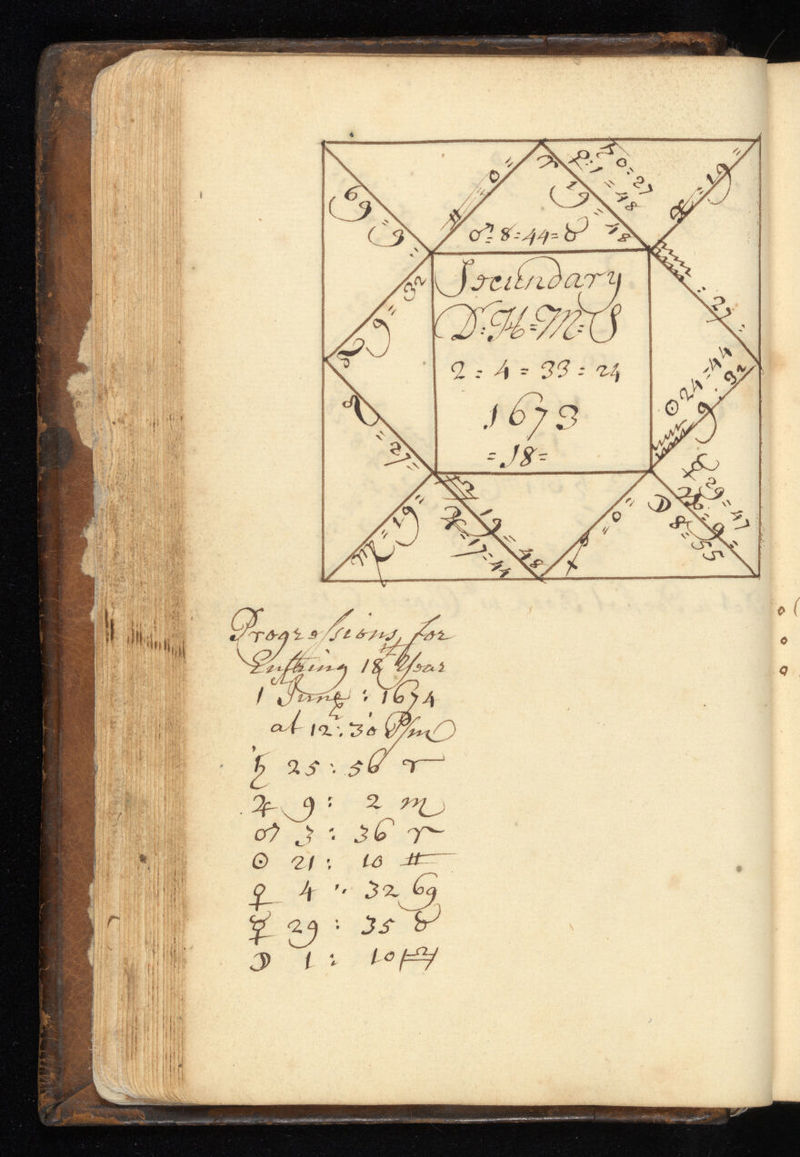 ♊ = 0 =
♂ = 8 = 44 = ♉
♈ 19 = 48
♄ 0 = 27
♀ : 1 = 48
♓ = 19 =
♋ = 9 =
♌ 9 = 32
♒ : 27 =
☉ 24 = 44
♒ 9 : 32
Secundary
D : H = M : S
2 = 4 = 33 = 24
1673
= 18 =
♌ = 27 =
♍ = 19 =
♎ 19 = 48
♃ = 17 = 44
♐ = 0 =
☿ 29 = 47
♑ = 9 =
☽ 8 = 55
Progressions for
Entring 18th Year
1 June : 1674
at 12h : 30' P m
♄ 25 : 56 ♈
♃ 9 : 2 ♏
♂ 3 : 36 ♈
☉ 21 : 10 ♊
♀ 4 : 32 ♋
☿ 29 : 35 ♉
☽ 1 : 10 ♓